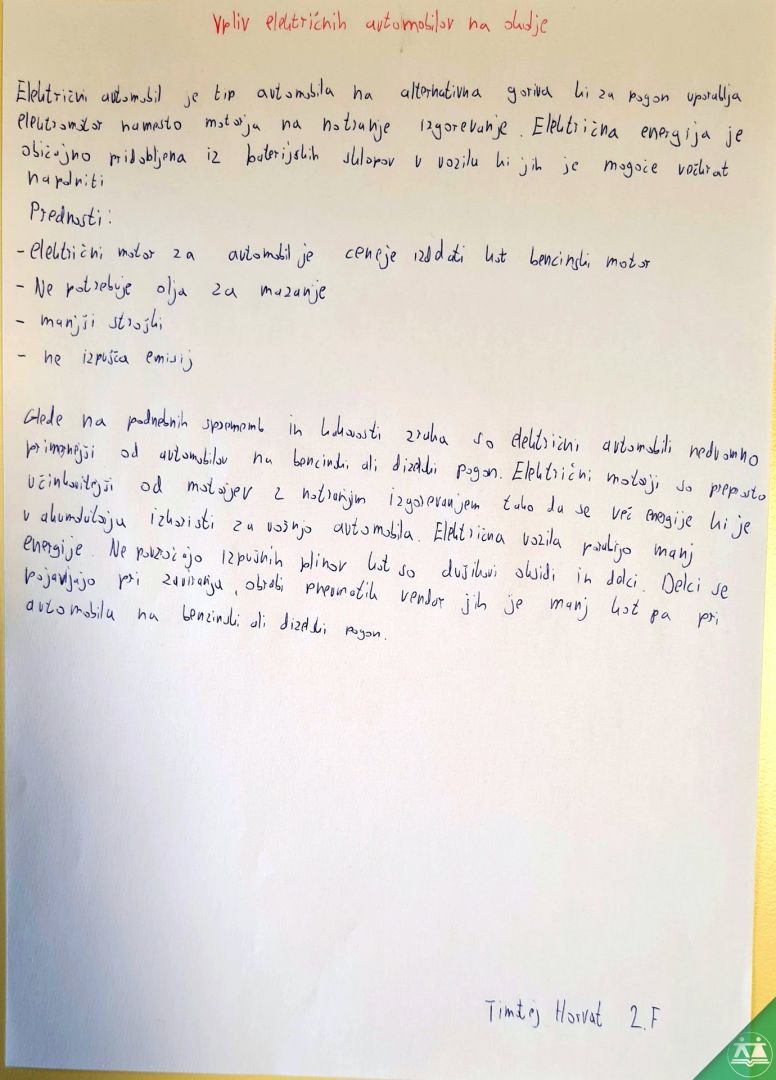 Vpliv električnih avtomobilov na okolje
Električni avtomobil je tip avtomobila na alternativna goriva ki za pogon uporablja
elektromotor namesto motorja na notranje izgorevanje. Električna energija je
običajno pridobljena iz baterijskih sklopov v vozilu ki jih je mogoče večkrat
napolniti
Prednosti:
- električni motor za avtomobil je ceneje izdelati kot bencinski motor
- Ne potrebuje olja za mazanje
- manjši stroški
- ne izpušča emisij
Glede na podnebnih sprememb in kakovosti zraka so električni avtomobili nedvomno
primernejši od avtomobilov na bencinski ali dizelski pogon. Električni motorji so preprosto
učinkovitejši od motorjev z notranjim izgorevanjem tako da se več energije ki je
v akumulatorju izkoristi za vožnjo avtomobila. Električna vozila porabijo manj
energije. Ne povzročajo izpušnih plinov kot so dušikovi oksidi in delci. Delci se
pojavljajo pri zaviranju, obrabi pnevmatik vendar jih je manj kot pa pri
avtomobilu na benzinski ali dizelski pogon.
Timotej Horvat 2.F